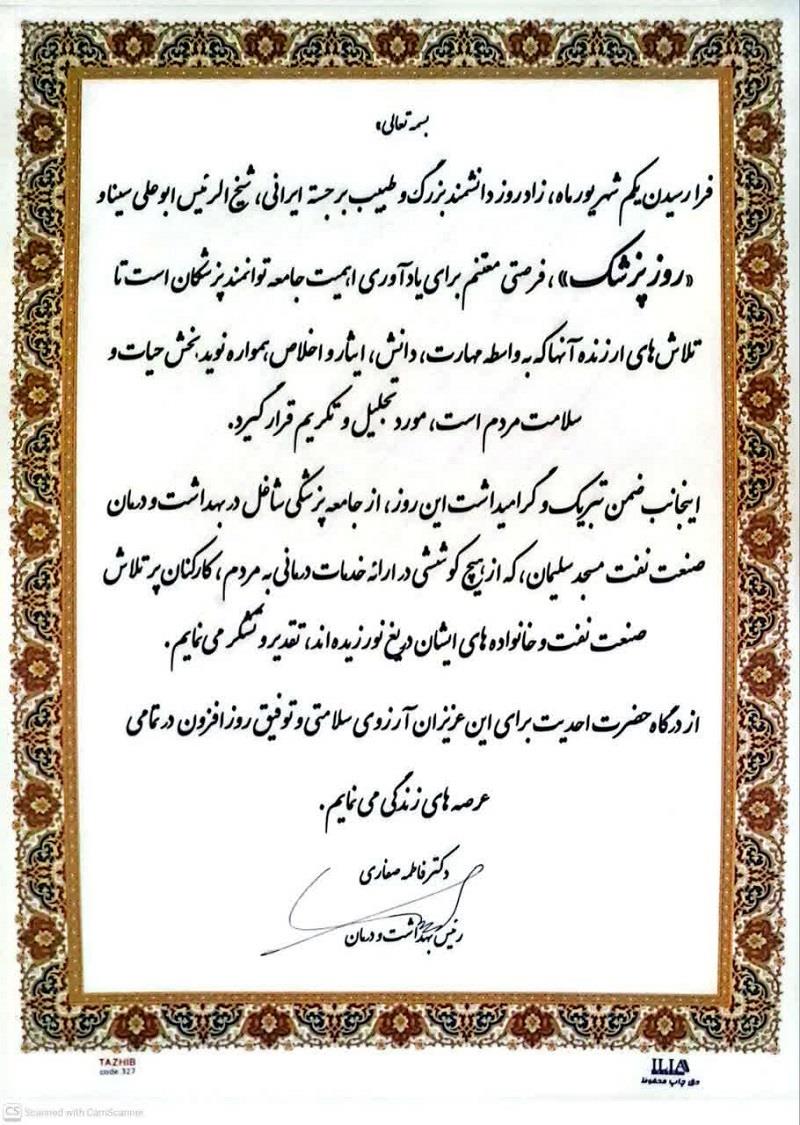 بسمه تعالی»
فرا رسیدن یکم شهریور ماه، زادروز دانشمند بزرگ و طبیب برجسته ایرانی، شیخ الرئیس ابوعلی سینا و
«روز پزشک»، فرصتی مغتنم برای یادآوری اهمیت جامعه توانمند پزشکان است تا
تلاش های ارزنده آنها که به واسطه مهارت، دانش، ایثار و اخلاص همواره نوید بخش حیات و
سلامت مردم است، مورد تجلیل و تکریم قرار گیرد.
اینجانب ضمن تبریک و گرامیداشت این روز، از جامعه پزشکی شاغل در بهداشت و درمان
صنعت نفت مسجدسلیمان، که از هیچ کوششی در ارائه خدمات درمانی به مردم، کارکنان پر تلاش
صنعت نفت و خانواده های ایشان دریغ نورزیده اند، تقدیر و تشکر می نمایم.
از درگاه حضرت احدیت برای این عزیزان آرزوی سلامتی و توفیق روز افزون در تمامی
عرصه های زندگی می نمایم.
دکتر فاطمه صفاری
رئیس بهداشت و درمان
TAZHIB
code 327
ILIA
حق چاپ محفوظ
CS Scanned with CamScanner